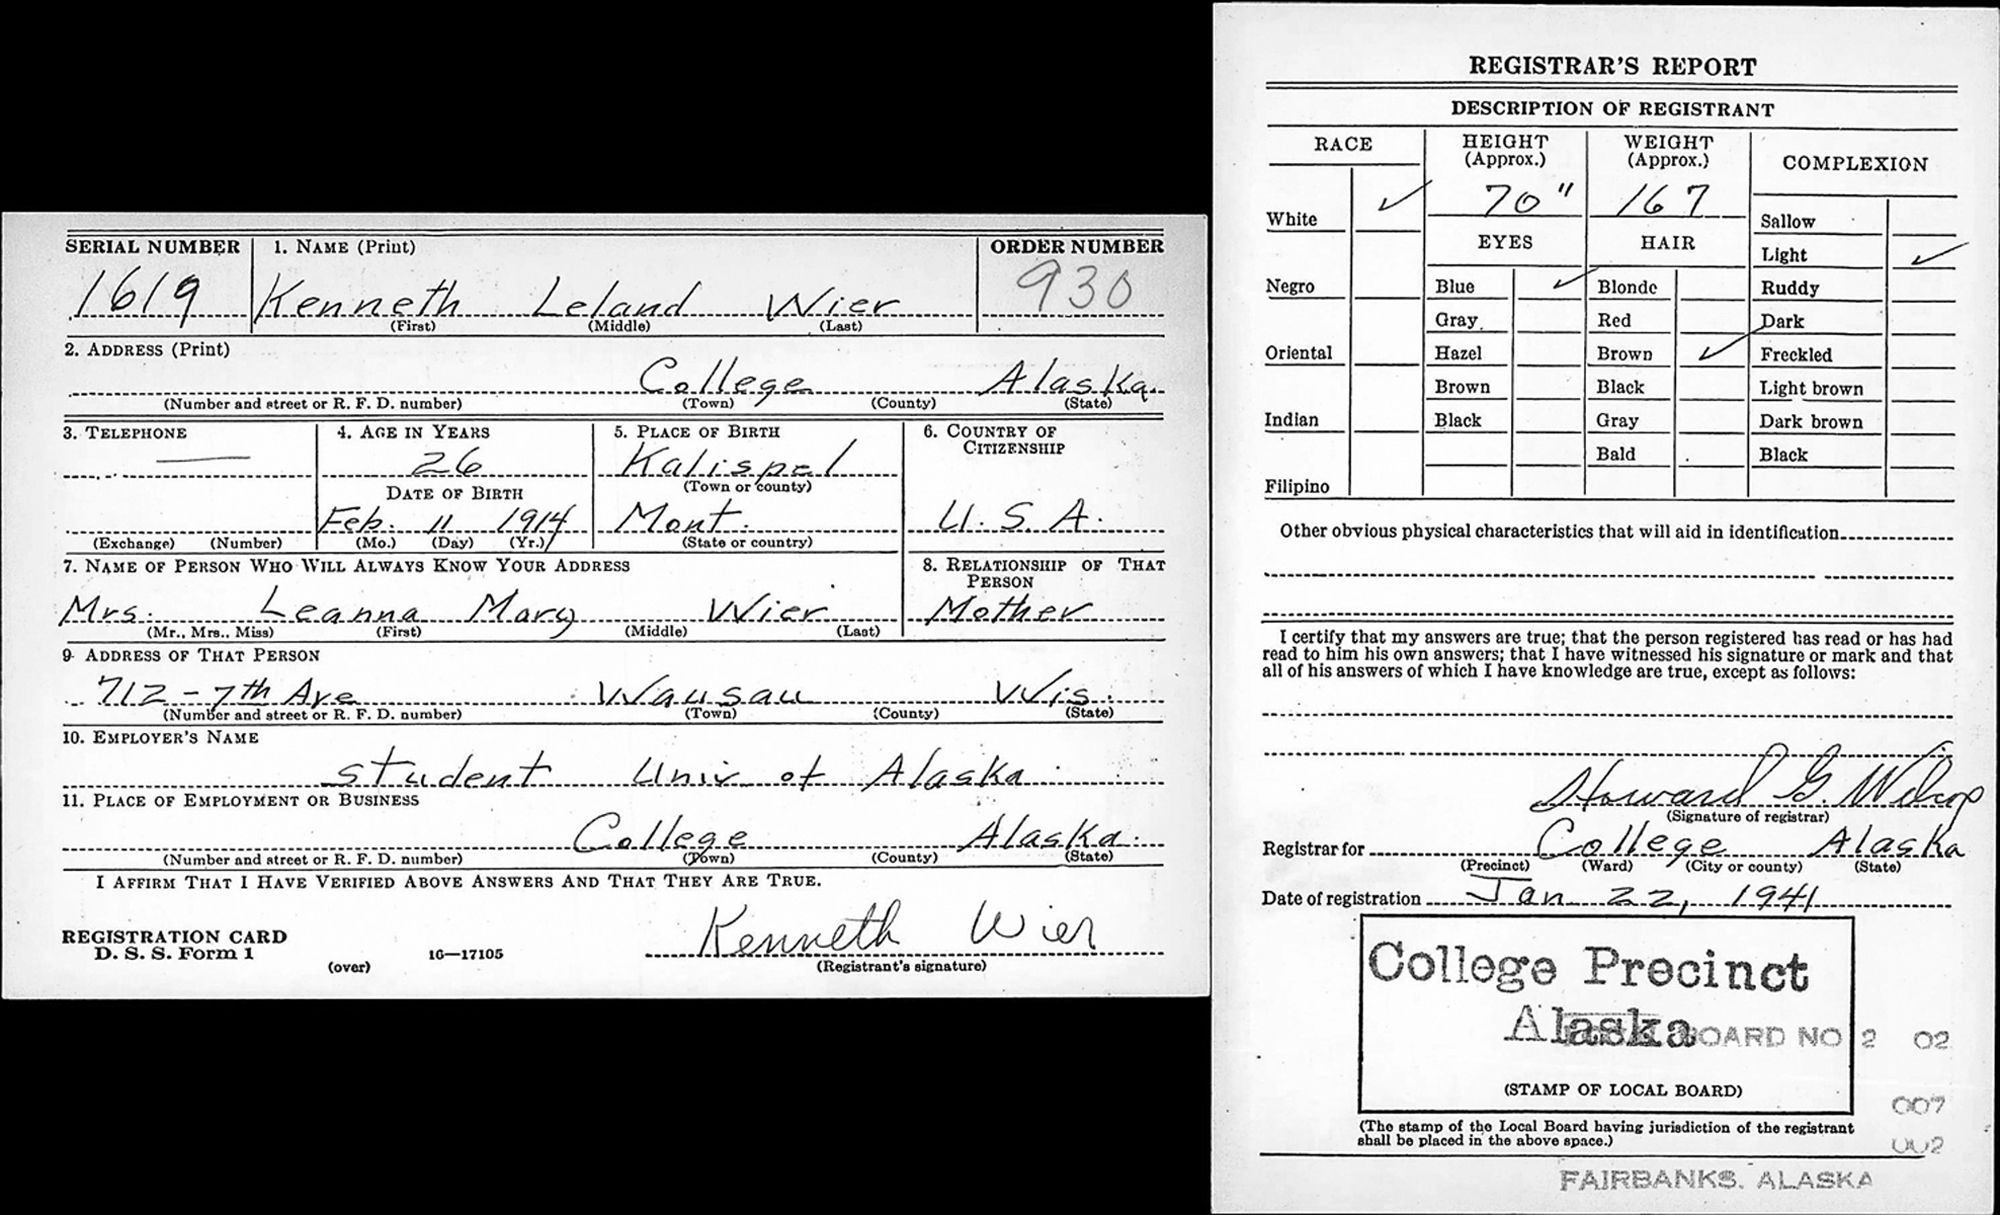 SERIAL NUMBER 1. NAME (Print) ORDER NUMBER
1619 Kenneth Leland Wier 930
(First) (Middle) (Last)
2. ADDRESS (Print)
College Alaska.
(Number and street or R. F. D. number) (Town) (County) (State)
3. TELEPHONE 4. AGE IN YEARS 5. PLACE OF BIRTH 6. COUNTRY OF CITIZENSHIP
— 26 Kalispel
(Town or county)
DATE OF BIRTH
Feb. 11 1914 Mont. U.S.A.
(Exchange) (Number) (Mo.) (Day) (Yr.) (State or country)
7. NAME OF PERSON WHO WILL ALWAYS KNOW YOUR ADDRESS 8. RELATIONSHIP OF THAT PERSON
Mrs. Leanna Mary Wier Mother
(Mr., Mrs., Miss) (First) (Middle) (Last)
9. ADDRESS OF THAT PERSON
712 - 7th Ave Wausau Wis.
(Number and street or R. F. D. number) (Town) (County) (State)
10. EMPLOYER'S NAME
student Univ of Alaska
11. PLACE OF EMPLOYMENT OR BUSINESS
College Alaska.
(Number and street or R. F. D. number) (Town) (County) (State)
I AFFIRM THAT I HAVE VERIFIED ABOVE ANSWERS AND THAT THEY ARE TRUE.
REGISTRATION CARD
D. S. S. Form 1
(over) 16—17105
Kenneth Wier
(Registrant's signature)
REGISTRAR'S REPORT
DESCRIPTION OF REGISTRANT
RACE HEIGHT (Approx.) WEIGHT (Approx.) COMPLEXION
White ✓ 70" 167 Sallow
EYES HAIR Light ✓
Negro Blue ✓ Blonde Ruddy
Gray Red Dark
Oriental Hazel Brown ✓ Freckled
Brown Black Light brown
Indian Black Gray Dark brown
Bald Black
Filipino
Other obvious physical characteristics that will aid in identification
I certify that my answers are true; that the person registered has read or has had
read to him his own answers; that I have witnessed his signature or mark and that
all of his answers of which I have knowledge are true, except as follows:
Howard G.
(Signature of registrar)
Registrar for College Alaska
(Precinct) (Ward) (City or county) (State)
Date of registration Jan 22, 1941
College Precinct
Alaska
BOARD NO 2 02
(STAMP OF LOCAL BOARD)
007
(The stamp of the Local Board having jurisdiction of the registrant
shall be placed in the above space.)
002
FAIRBANKS, ALASKA